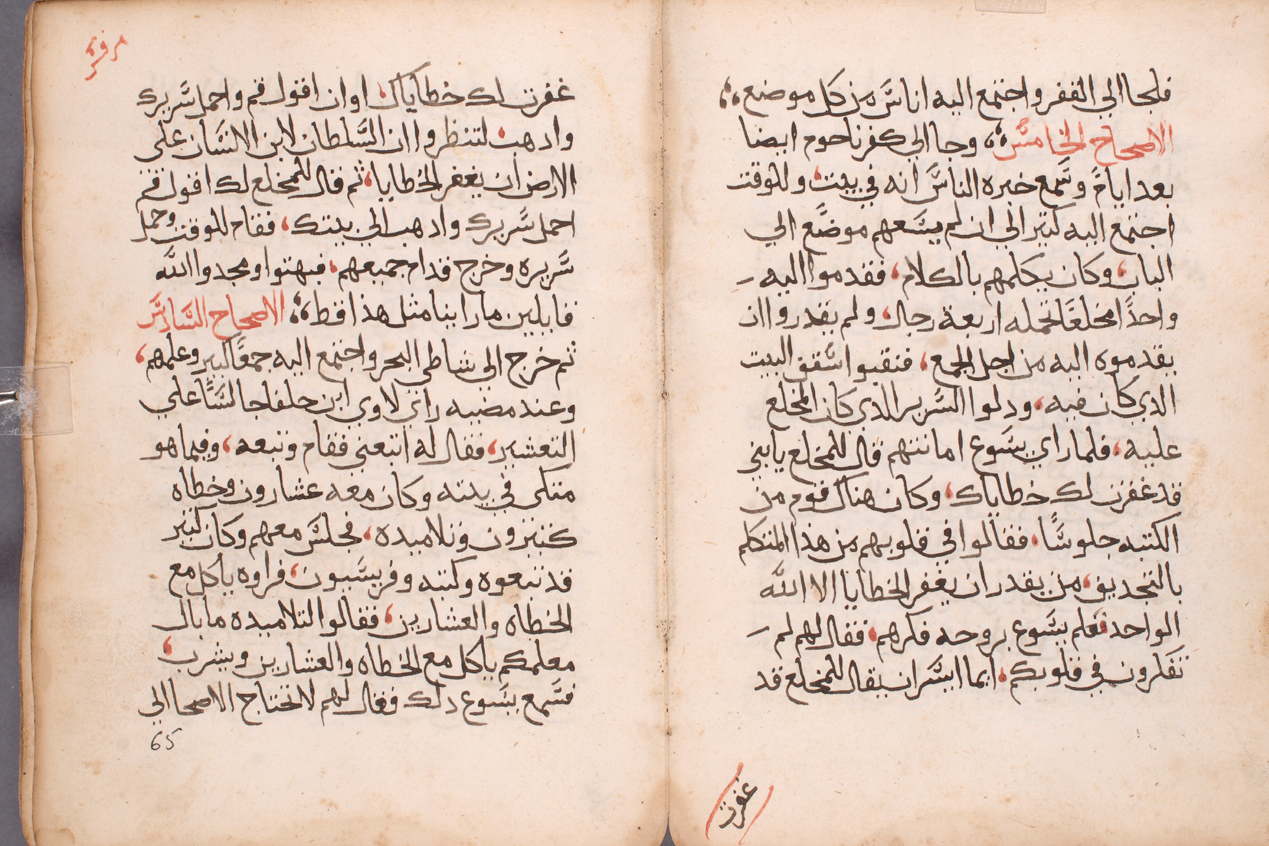 فلجا الي القفر واجتمع اليه اناس من كل موضع
الاصحاح الخامس وجا الى كفرناحوم ايضا
بعد ايام وسمع خبره الناس انه في بيت وللوقت
اجتمع اليه كتير الي ان لم يسعهم موضع الي
الباب وكان يكلمهم بالكلام فقدموا اليه
واحدًا مخلعًا تحمله اربعة رجال ولم يقدروا ان
يقدموه اليه من اجل الجمع فنقبوا سقف البيت
الدي كان فيه ودلوا السرير الدي كان المخلع
عليه فلما راي يسوع امانتهم قال للمخلع يابني
قد غفرت لك خطاياك وكان هناك قوم من
الكتبه جلوسًا فقالوا في قلوبهم من هذا المتكلم
بالتجديق من يقدر ان يغفر الخطايا الا الله
الواحد فعلم يسوع بروحه فكرهم فقال لهم لم
تفكرون في قلوبكم ايما ايسر ان يقال للمخلع قد
غفرت
مرقس
غفرت لك خطاياك او ان اقول قم واحمل سريرك
وادهب لتنظروا ان السلطان لابن الانسان علي
الارض ان يغفر الخطايا ثم قال للمخلع لك اقول قم
احمل سريرك وادهب الي بيتك فقام للوقت وحمل
سريره وخرج قدام جميعهم فبهتوا ومجدوا الله
قايلين ما راينا مثل هذا قط الاصحاح السادس
ثم خرج الى شاطي البحر واجتمع اليه جمعًا كبير وعلمهم
وعند مضيه راي لاوي ابن حلفا جالسًا علي
التعشير فقال له اتبعني فقام وتبعه وفيما هو
متكى في بيته وكان معه عشارون وخطاه
كتيرون وتلاميده فجلس معهم وكان كتير
قد تبعوه وكتبه وفريسيون فراوه ياكل مع
الخطاه والعشارين فقالوا لتلاميده ما بال
معلمكم ياكل مع الخطاه والعشارين ويشرب
فسمع يسوع دلك فقال لهم لا تحتاج الاصحا الي
65